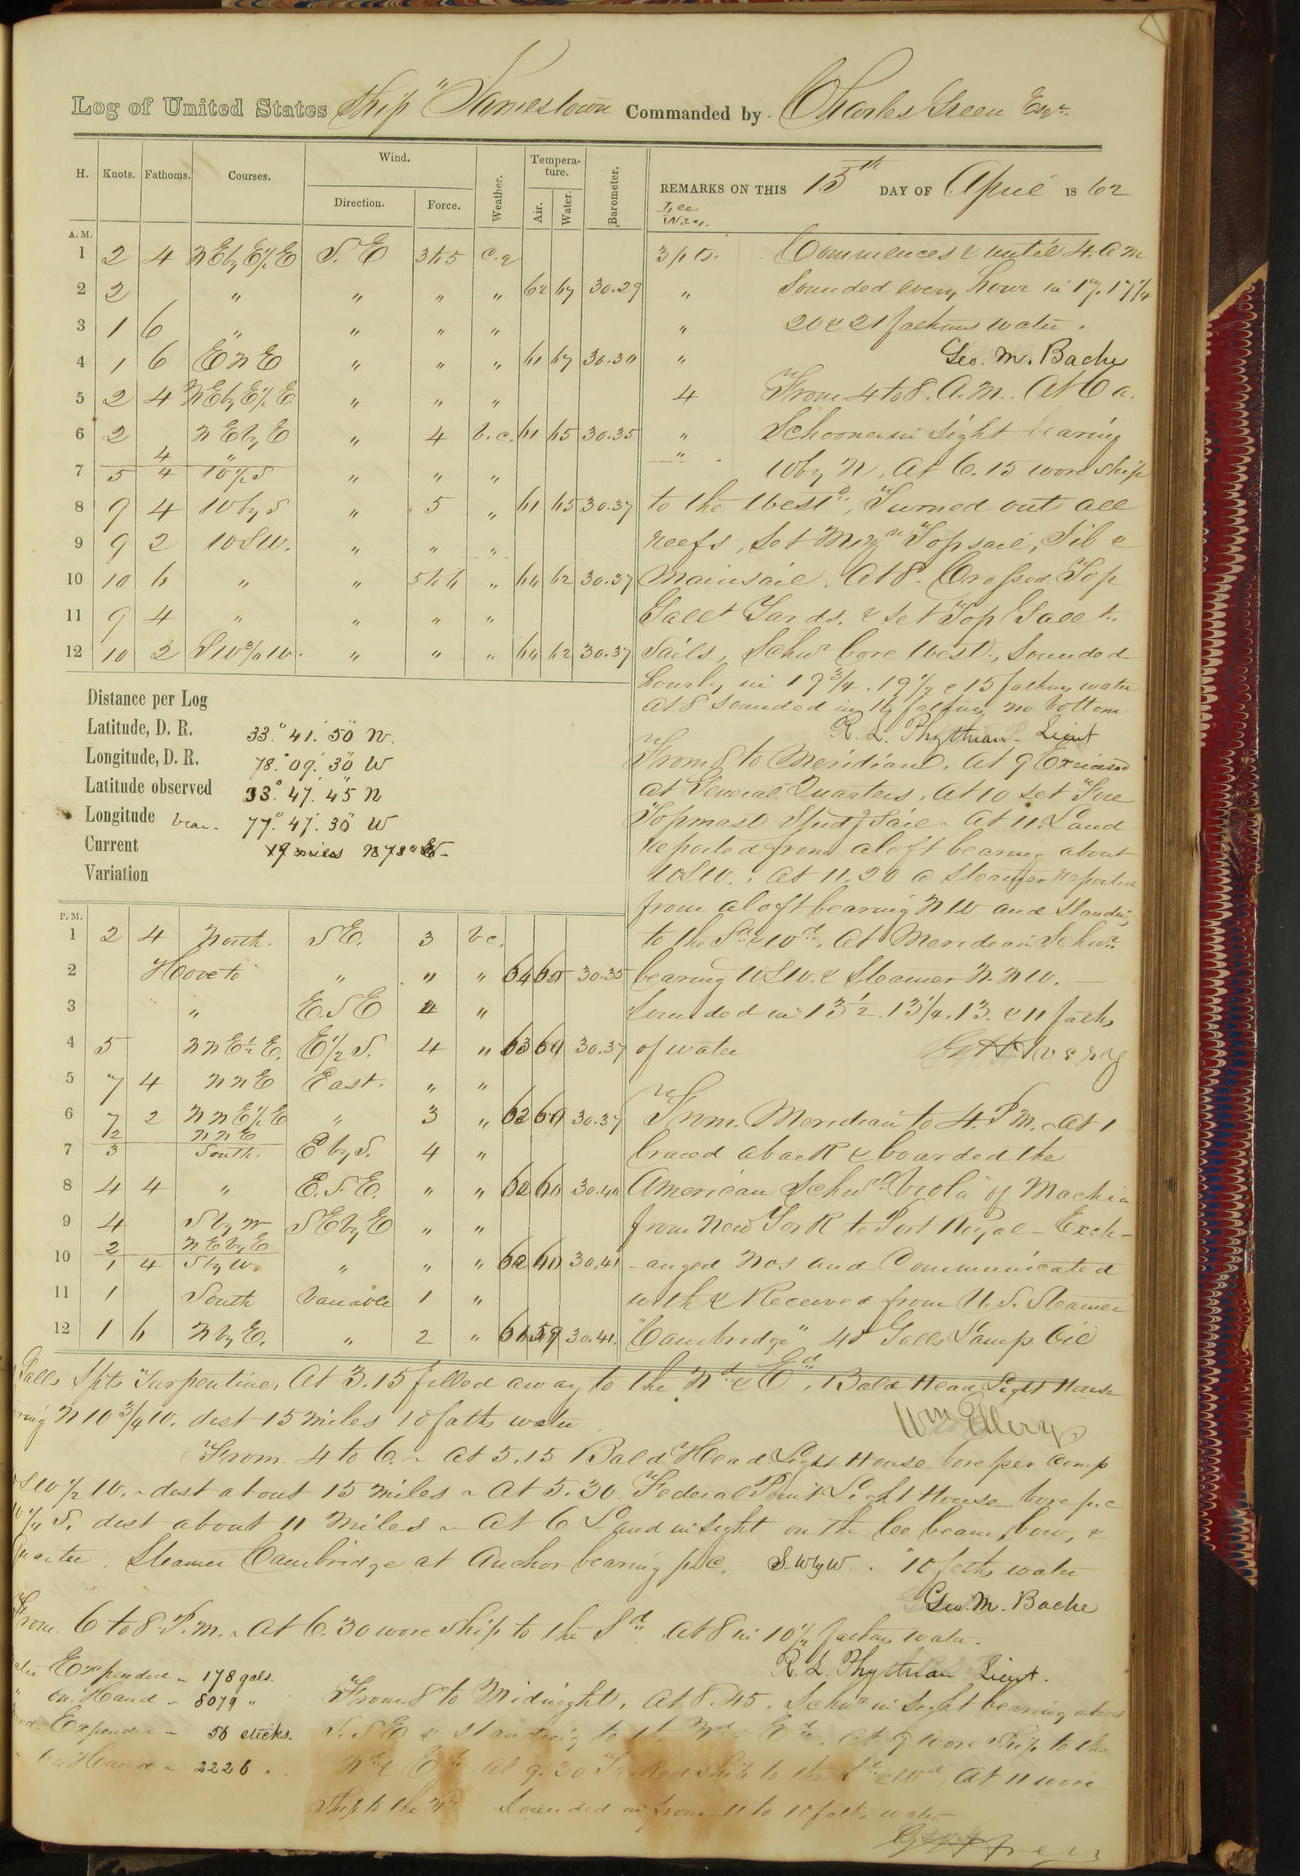 Log of United States Ship "Jamestown Commanded by Charles Green Esqr.
H. Knots. Fathoms. Courses. Wind. Direction. Force. Weather. Tempera-ture. Air. Water. Barometer. REMARKS ON THIS 15th DAY OF April 1862
Lee Way.
A.M.
1 2 4 NEbyE½E S.E 3 to 5 c.q 3 pts. Commences & until 4. a m
2 2 " " " " 62 67 30.29 " Sounded every hour in 17. 17¼
3 1 6 " " " " " 20 & 21 fathoms water.
4 1 6 ENE " " " 61 67 30.30 " Geo. M. Bache
5 2 4 NEbyE½E " " " 4 From 4 to 8. A.M. At 6 a
6 2 NEbyE " 4 b.c. 61 65 30.35 " Schooner in sight bearing
4 "
7 5 4 W½S " " " " W by N, At 6.15 wore ship
8 9 4 W by S " 5 " 61 65 30.37 to the Westd. Turned out all
9 9 2 WSW. " " " reefs, set Mizn Topsail, Jib &
10 10 6 " " 5 to 6 " 64 62 30.37 Mainsail. At 8. Crossed Top
11 9 4 " " " " Gallt Yards. & set Top Gallt.
12 10 2 SW¾W. " " " 64 62 30.37 Sails, Schnr bore West., Sounded
hourly in 19¾. 19½ & 15 fathoms water
at 8 sounded in fathoms no bottom
R. L. Phythian Lieut
Distance per Log
Latitude, D. R. 33° 41' 50" N.
Longitude, D. R. 78° 09' 30" W
Latitude observed 33° 47' 45" N
Longitude 77° 47' 30" W
Current 19 miles N 73°
Variation
From 8 to Meridian. At 9 Exercised
at General Quarters. At 10 set Fore
Topmast Studg Sail. At 11. Land
reported from aloft bearing about
WSW.: At 11.20 a Steamer reported
from aloft bearing NW and standing
P.M.
1 2 4 North. SE. 3 bc. to the Sd & Wd. At Meridian Schnr.
2 Hove to " " " 64 65 30.35 bearing WSW. & Steamer N.NW.
3 " E.SE 4 " Sounded in 13½. 13¼. 13. & 11 faths
4 5 NNE½E. E½S. 4 " 63 60 30.37 of water
5 7 4 NNE East. " "
6 7 2 NNE½E " 3 " 62 60 30.37 From Meridian to 4 P.M. At 1
½ NNE
7 3 South. E by S. 4 " braced aback & boarded the
8 4 4 " E.S.E. " " 62 60 30.40 American Schnr "Viola" of Machias
9 4 S by W SEbyE " " from New York to Port Royal - Exch-
2 NEbyE
10 1 4 S by W. " " " 62 60 30.41 -anged Nos and Communicated
11 1 South Variable 1 " with & Received from U.S. Steamer
12 1 6 N by E. " 2 " 61 59 30.41. "Cambridge" 40 Galls Lamp Oil
Galls Spts Turpentine. At 3.15 filled away to the Nd & Ed. Bald Head Light House
W¾W. dist 15 miles 10 faths water
Wm Ellery
From 4 to 6. At 5.15 Bald Head Light House bore per comp
½ W. dist about 15 miles. At 5.30 Federal Point Light House bore p.c
S. dist about 11 Miles. At 6 Land in sight on the lee beam, bow, &
quarter. Steamer Cambridge at Anchor bearing p.c. S.WbyW. 10 faths water
Geo. M. Bache
From 6 to 8 P.M. At 6.30 wore ship to the Sd. At 8 in 10½ fathoms water.
R. L. Phythian Lieut.
Expended - 178 gals.
on Hand - 8079 "
Expended - 56 sticks.
on Hand - 2226 "
From 8 to Midnight. At 8.45. Schnr in sight bearing about
S.SE & standing to the Nd & Ed. At 9 wore Ship to the
Nd & Ed. At 9.30 Tacked ship to the Sd & Wd. At 11 wore
Ship to the Nd Sounded in from 11 to 10 faths water